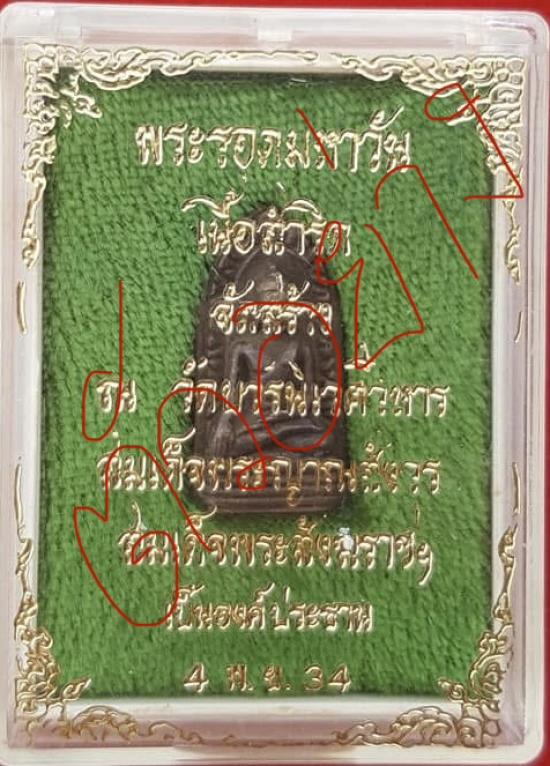 พระรอดมหาวัน
เนื้อสำริด
จัดสร้าง
ณ วัดบวรนิเวศวิหาร
สมเด็จพระญาณสังวร
สมเด็จพระสังฆราชฯ
เป็นองค์ประธาน
4 พ.ย. 34